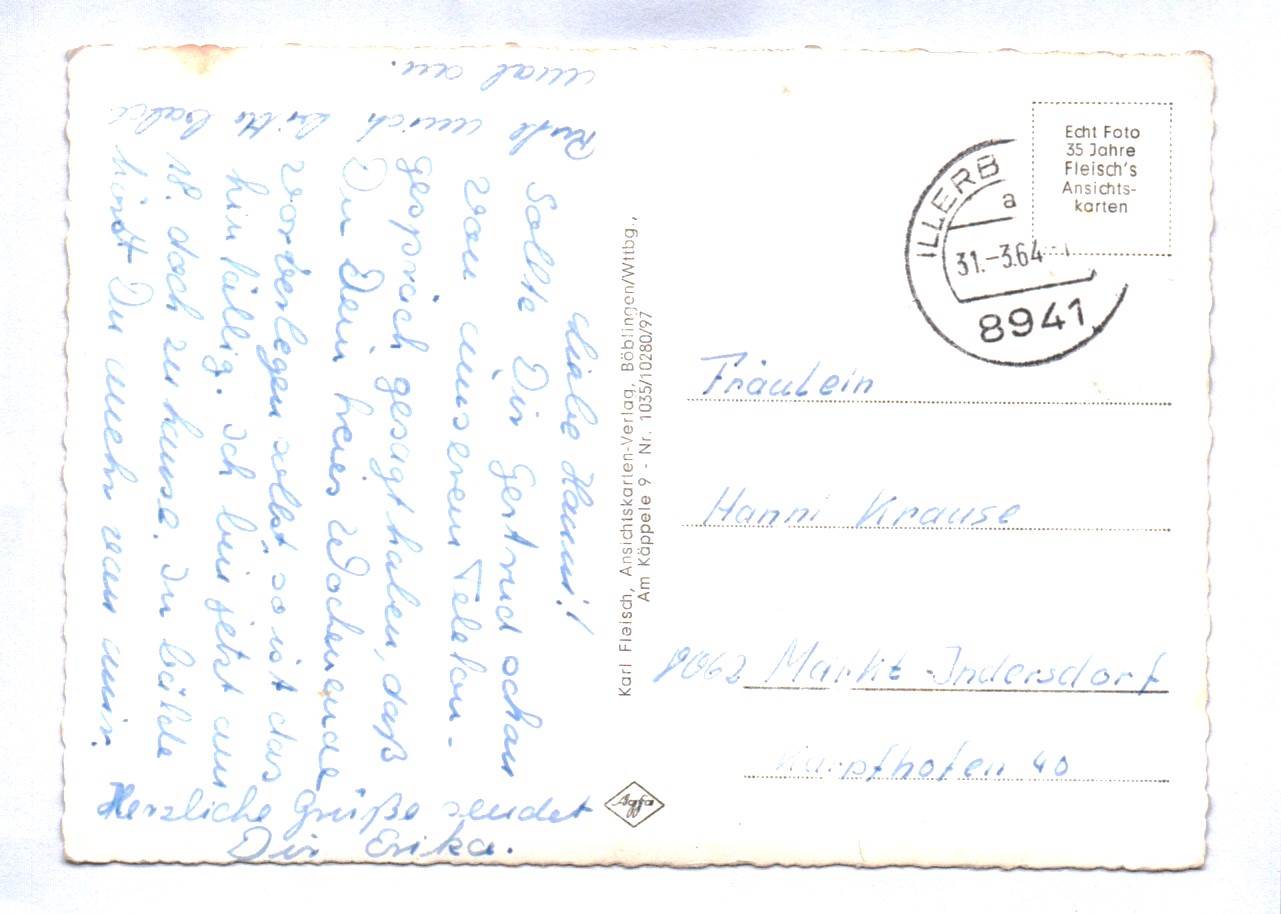 Liebe Hanni!
Sollte Dir Gertrud schon
von unserem Telefon-
gespräch gesagt haben, daß
Du Dein freies Wochenende
vorverlegen sollst, so ist das
hinfällig. Ich bin jetzt am
18. doch zu hause. In bälde
hörst Du mehr von mir.
Herzliche Grüße sendet
Dir Erika.
Rufe mich bitte bald
mal an.
Karl Fleisch, Ansichtskarten-Verlag, Böblingen/Wttbg.,
Am Käppele 9 - Nr. 1035/10280/97
Agfa
Echt Foto
35 Jahre
Fleisch's
Ansichts-
karten
ILLERB
a
31.-3.64
8941
Fräulein
Hanni Krause
8062 Markt Indersdorf
Karpfhofen 40